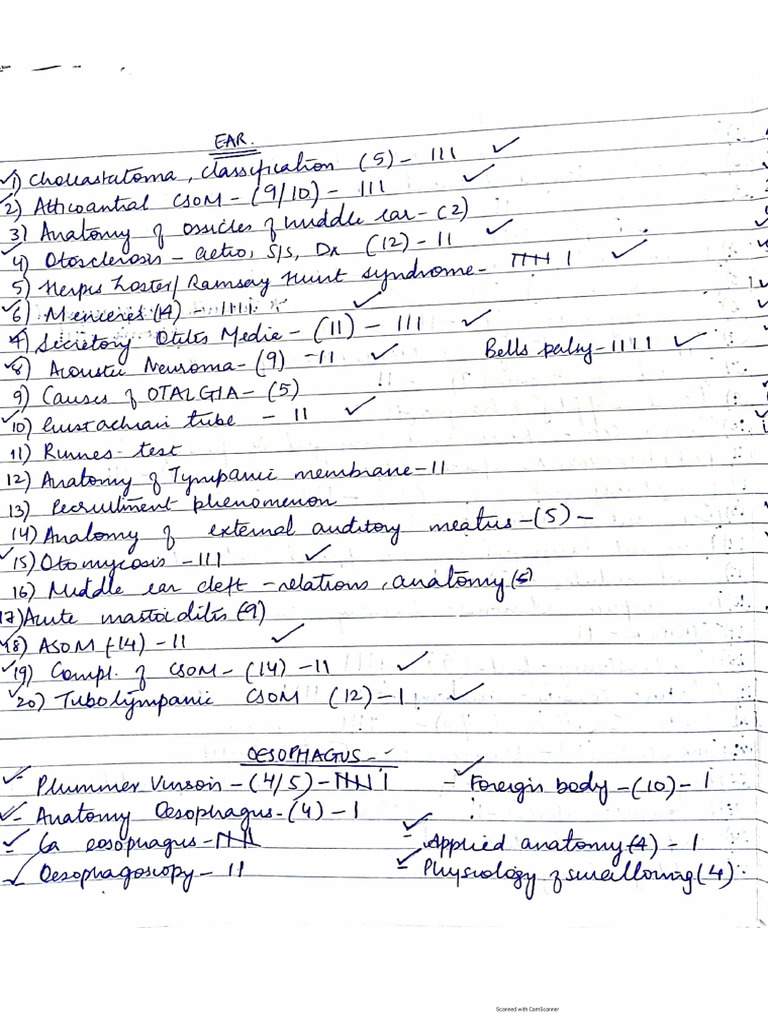 EAR.
1) Choleastatoma, classification (5) - III
2) Atticoantral CSOM - (9/10) - III
3) Anatomy of ossicles of middle ear - (2)
4) Otosclerosis - aetio, S/S, Dx (12) - II
5) Herpes Zoster/ Ramsery Hunt syndrome - IIII I
6) Menieres (14) - IIII
7) Secretory Otitis Media - (11) - III
8) Acoustic Neuroma - (9) - II
Bells palsy - IIII
9) Causes of OTALGIA - (5)
10) Eustachian tube - II
11) Rinnes test
12) Anatomy of Tympanic membrane - II
13) Recruitment phenomenon
14) Anatomy of external auditory meatus - (5) -
15) Otomycosis - III
16) Middle ear cleft - relations, anatomy (5)
17) Acute mastoiditis (9)
18) ASOM (14) - II
19) Compl. of CSOM - (14) - II
20) Tubotympanic CSOM (12) - I
OESOPHAGUS -
- Plummer Vinson - (4/5) - IIII I
- Foreign body - (10) - I
- Anatomy Oesophagus - (4) - I
- Ca eosophagus -
- Applied anatomy (4) - I
- Oesophagoscopy - II
- Physiology of swallowing (4)
Scanned with CamScanner